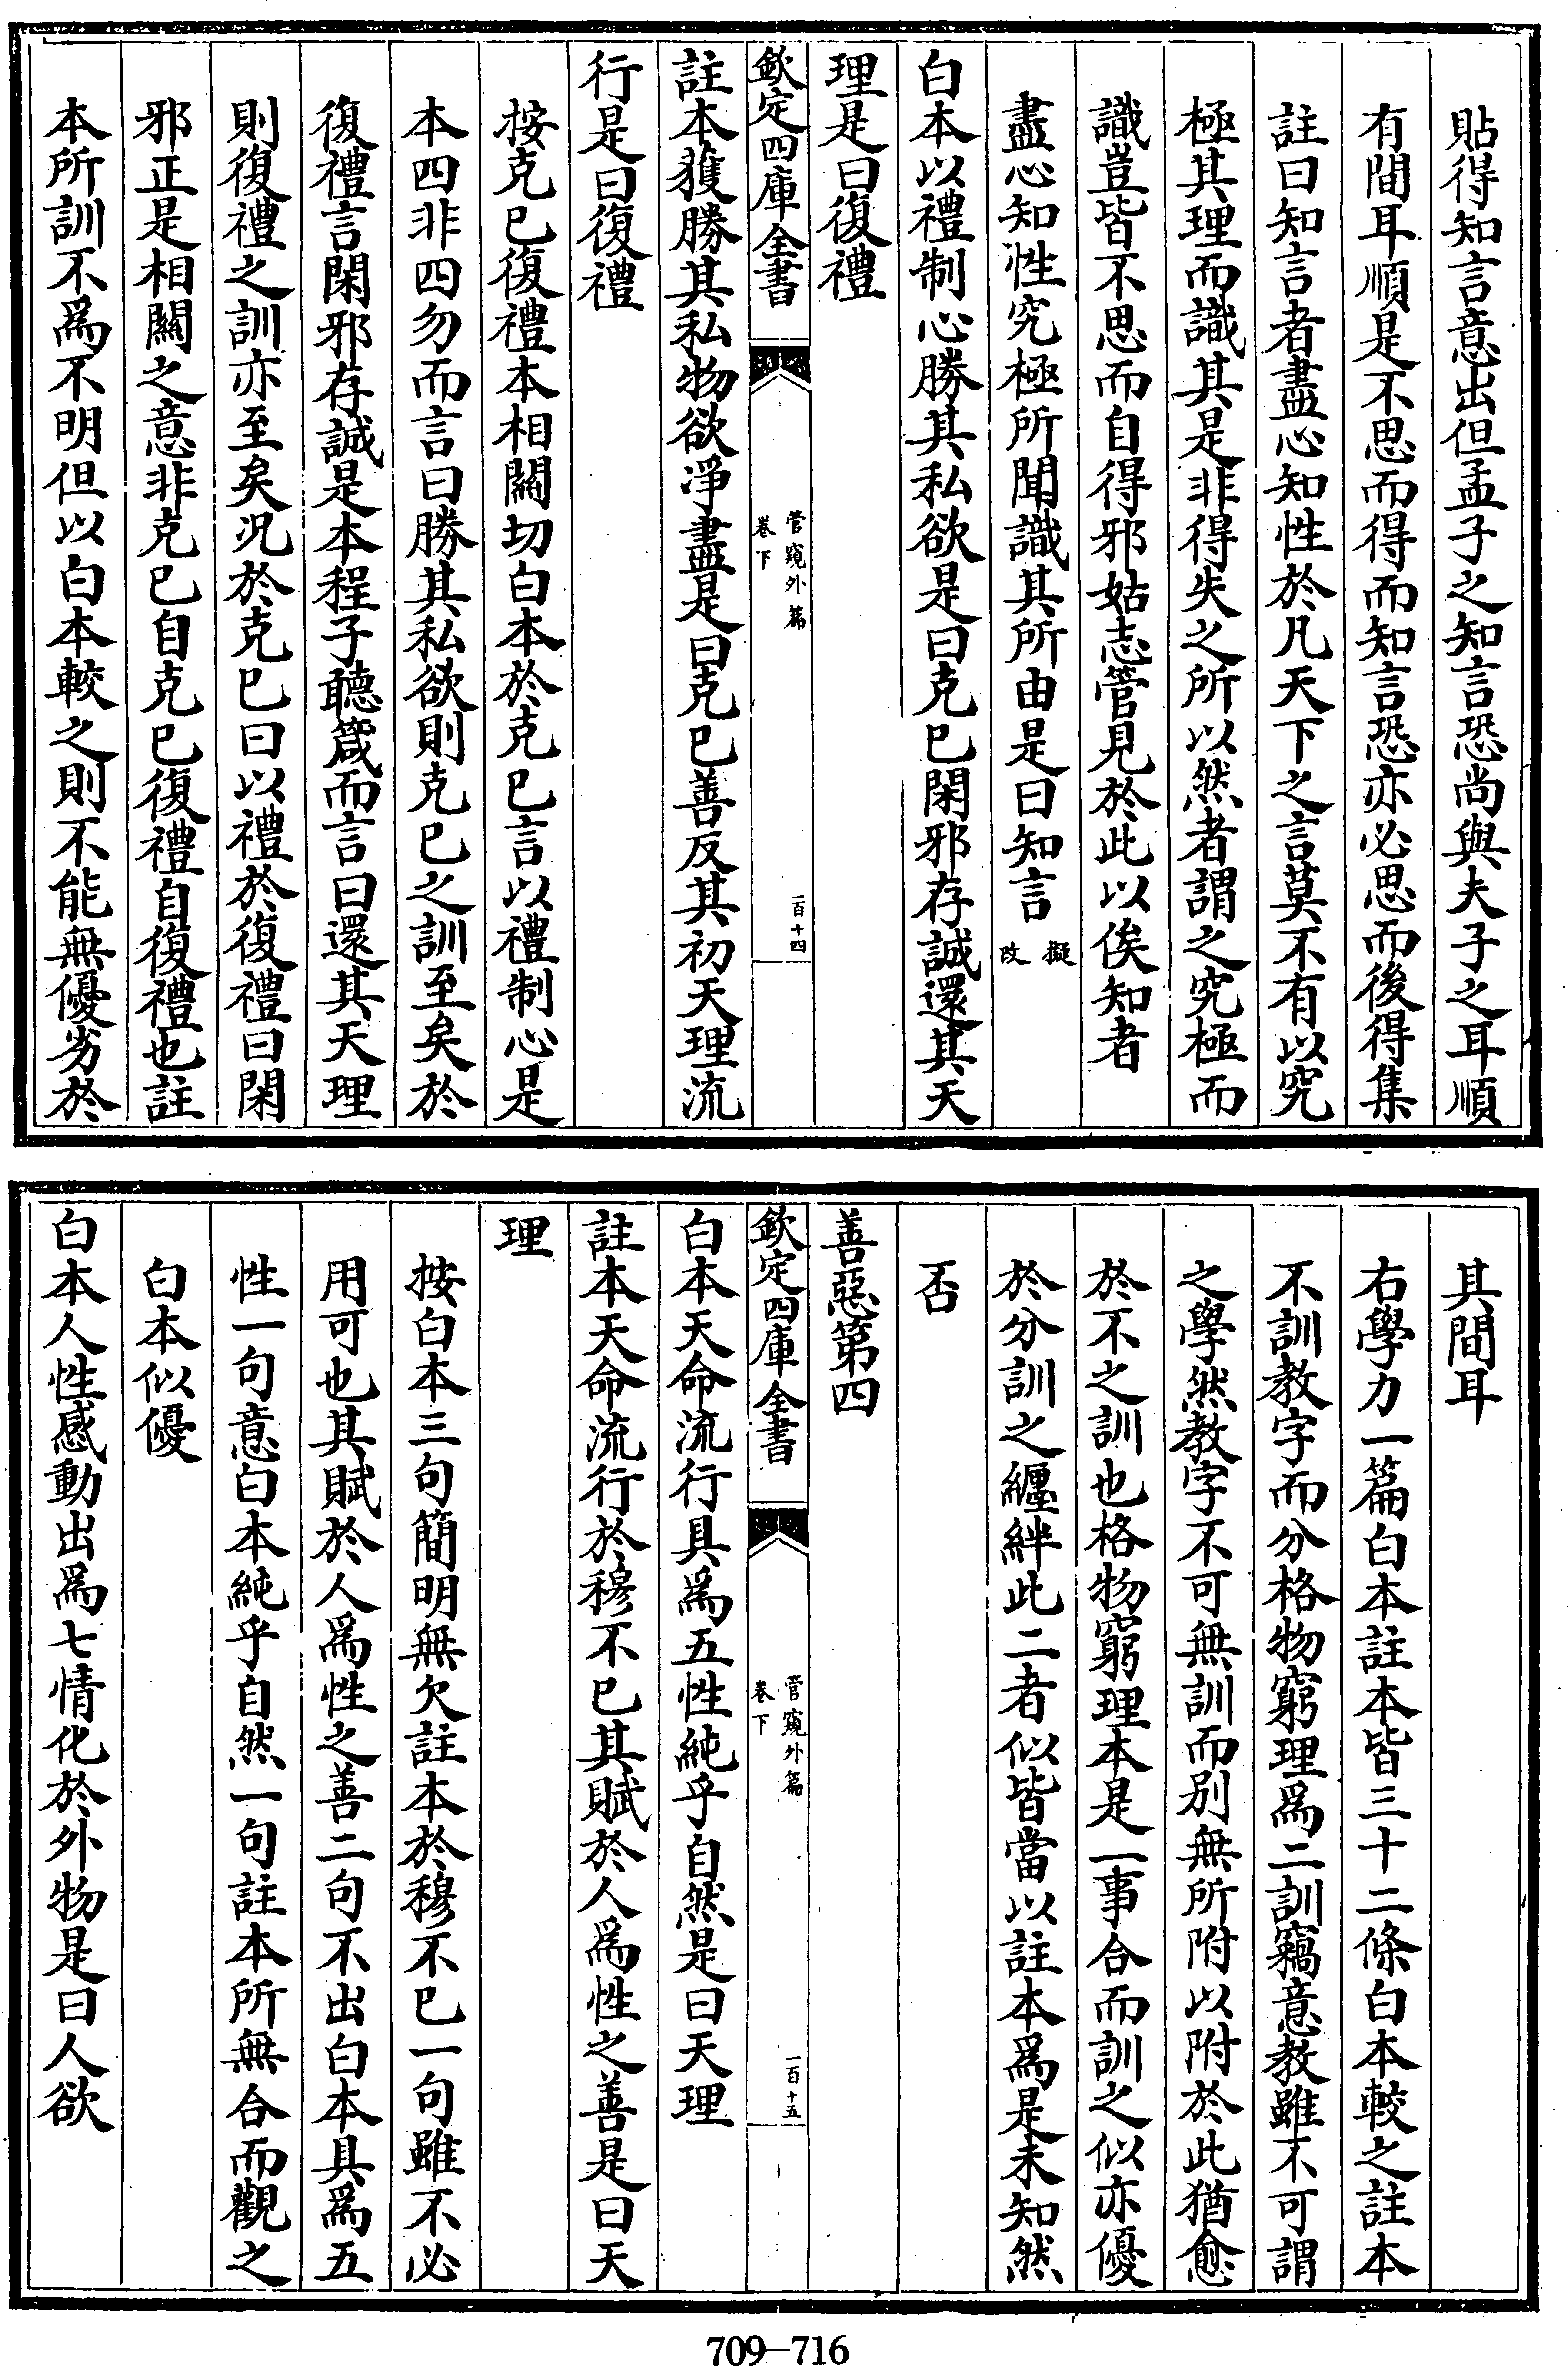 貼得知言意出但孟子之知言恐尚與夫子之耳順
有間耳順是不思而得而知言恐亦必思而後得集
註曰知言者盡心知性於凡天下之言莫不有以究
極其理而識其是非得失之所以然者謂之究極而
識豈皆不思而自得邪姑志管見於此以俟知者
盡心知性究極所聞識其所由是曰知言擬改
白本以禮制心勝其私欲是曰克己閑邪存誠還其天
理是曰復禮
欽定四庫全書
管窺外篇
卷下
一百十四
註本獲勝其私物欲淨盡是曰克己善反其初天理流
行是曰復禮
按克己復禮本相關切白本於克己言以禮制心是
本四非四勿而言曰勝其私欲則克己之訓至矣於
復禮言閑邪存誠是本程子聽箴而言曰還其天理
則復禮之訓亦至矣况於克己曰以禮於復禮曰閑
邪正是相關之意非克己自克己復禮自復禮也註
本所訓不為不明但以白本較之則不能無優劣於
其間耳
右學力一篇白本註本皆三十二條白本較之註本
不訓教字而分格物窮理為二訓竊意教雖不可謂
之學然教字不可無訓而别無所附以附於此猶愈
於不之訓也格物窮理本是一事合而訓之似亦優
於分訓之纏絆此二者似皆當以註本為是未知然
否
善惡第四
欽定四庫全書
管窺外篇
卷下
一百十五
白本天命流行具為五性純乎自然是曰天理
註本天命流行於穆不已其賦於人為性之善是曰天
理
按白本三句簡明無欠註本於穆不已一句雖不必
用可也其賦於人為性之善二句不出白本具為五
性一句意白本純乎自然一句註本所無合而觀之
白本似優
白本人性感動出為七情化於外物是曰人欲
709-716